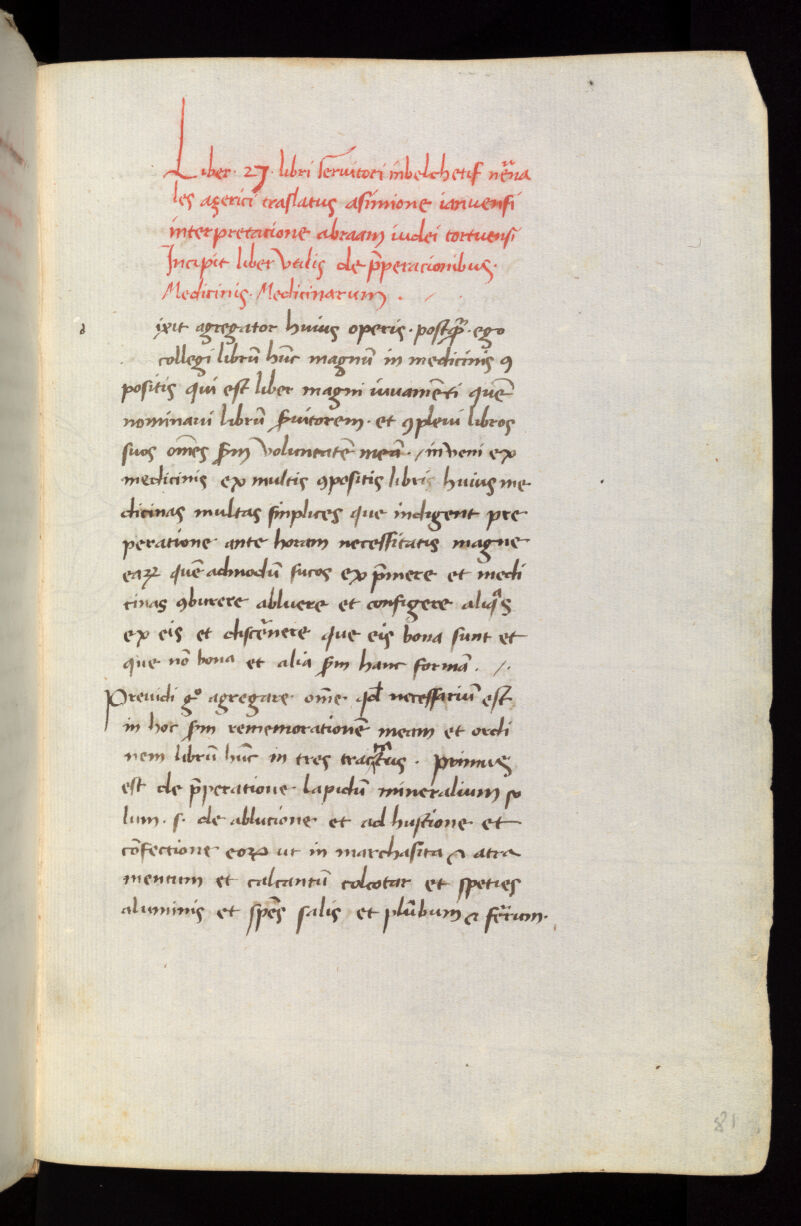 Liber · 27 · libri servitori inbelchetif nēna
les azerici traslatus asimione ianuensi
interpretatione abraam iudei tortuensi
Incipit liber Vtilis de p̄peracionibus·
Medicinis · Medicinarum .
d ixit agregator huius operis · postq̄ᵃ · ego
collegi librū hūc magnū in medicinis ꝯ
positis qui est liber magni iuvamēti quē
nominaui librū s̄uitorem · et ꝯpleui libros
suos om̄es s̄m voluntatē meā · inveni ex
medicinis ex multis ꝯpositis libris huius me
dicinas multas sinplices que indigent pre
peratione ante horam necessitatis magne
eaꝝ quē admodū sucos ex p̄mere et medi
cinas ꝯburere abluere et configere aliqᵃs
ex eis et discēnere que eis bona sunt et
que nō bona et alia s̄m hanc formā .
Preuidi gº agregare om̄e qd̄ necessariū est
in hoc s̄m rememorationē meam et ordi
nem librū hūc in tres tractatus . primus
est de p̄peratione lapidū mineralium so
lum · s · de ablutione et ad hustione et
cōfectione eoꝝ ut in marchasita & atra
mentum et calcantū colcotar et speties
aluminis et spēs salis et plūbum & ferrum ·
81